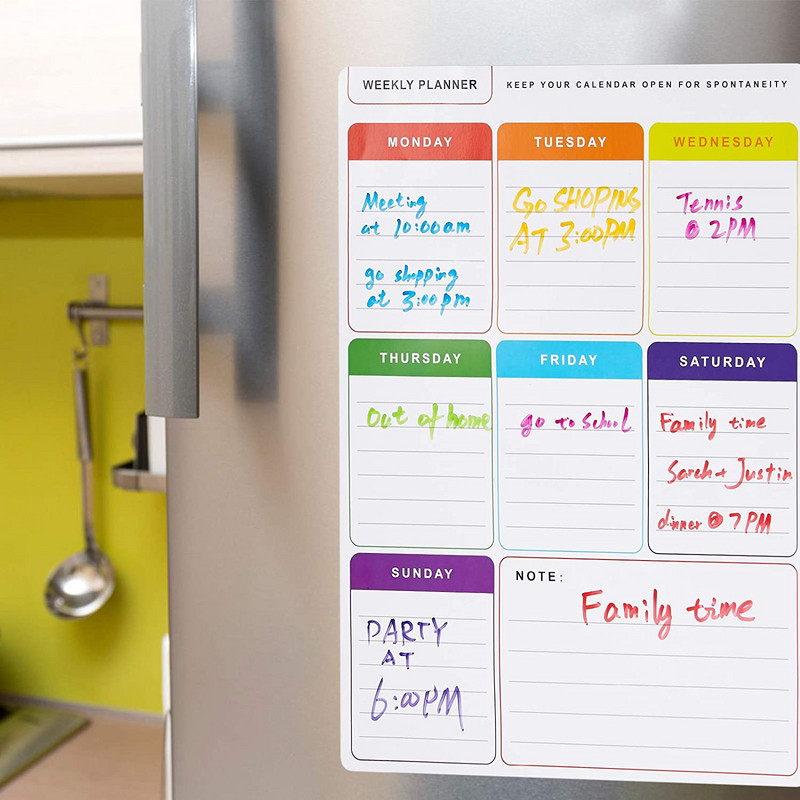 WEEKLY PLANNER
KEEP YOUR CALENDAR OPEN FOR SPONTANEITY
MONDAY
Meeting
at 10:00am
go shopping
at 3:00pm
TUESDAY
Go SHOPING
AT 3:00PM
WEDNESDAY
Tennis
@ 2PM
THURSDAY
Out of home
FRIDAY
go to School
SATURDAY
Family time
Sarah + Justin
dinner @ 7PM
SUNDAY
PARTY
AT
6:00PM
NOTE:
Family time